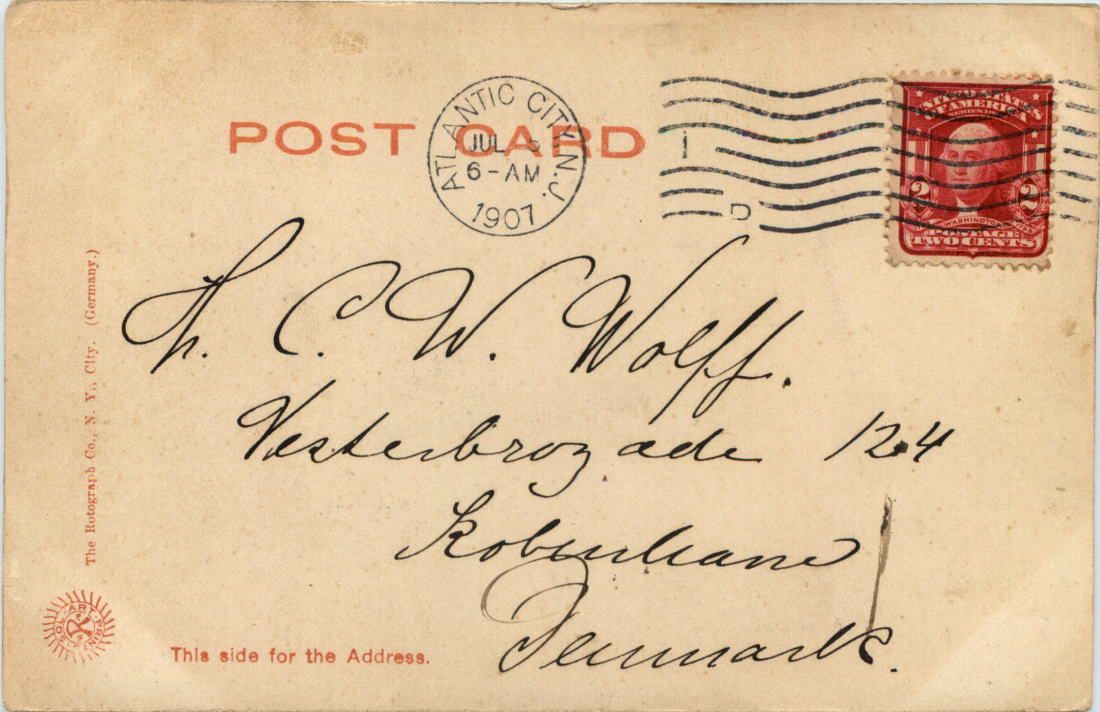 POST CARD
ATLANTIC CITY, N.J.
JUL
6-AM
1907
UNITED STATES
OF AMERICA
2 2
WASHINGTON
POSTAGE
TWO CENTS
h. C. W. Wolff.
Vesterbrogade 124
Kobenhavn
Denmark.
The Rotograph Co., N. Y., City. (Germany.)
SOL ART PRINTS
R
This side for the Address.